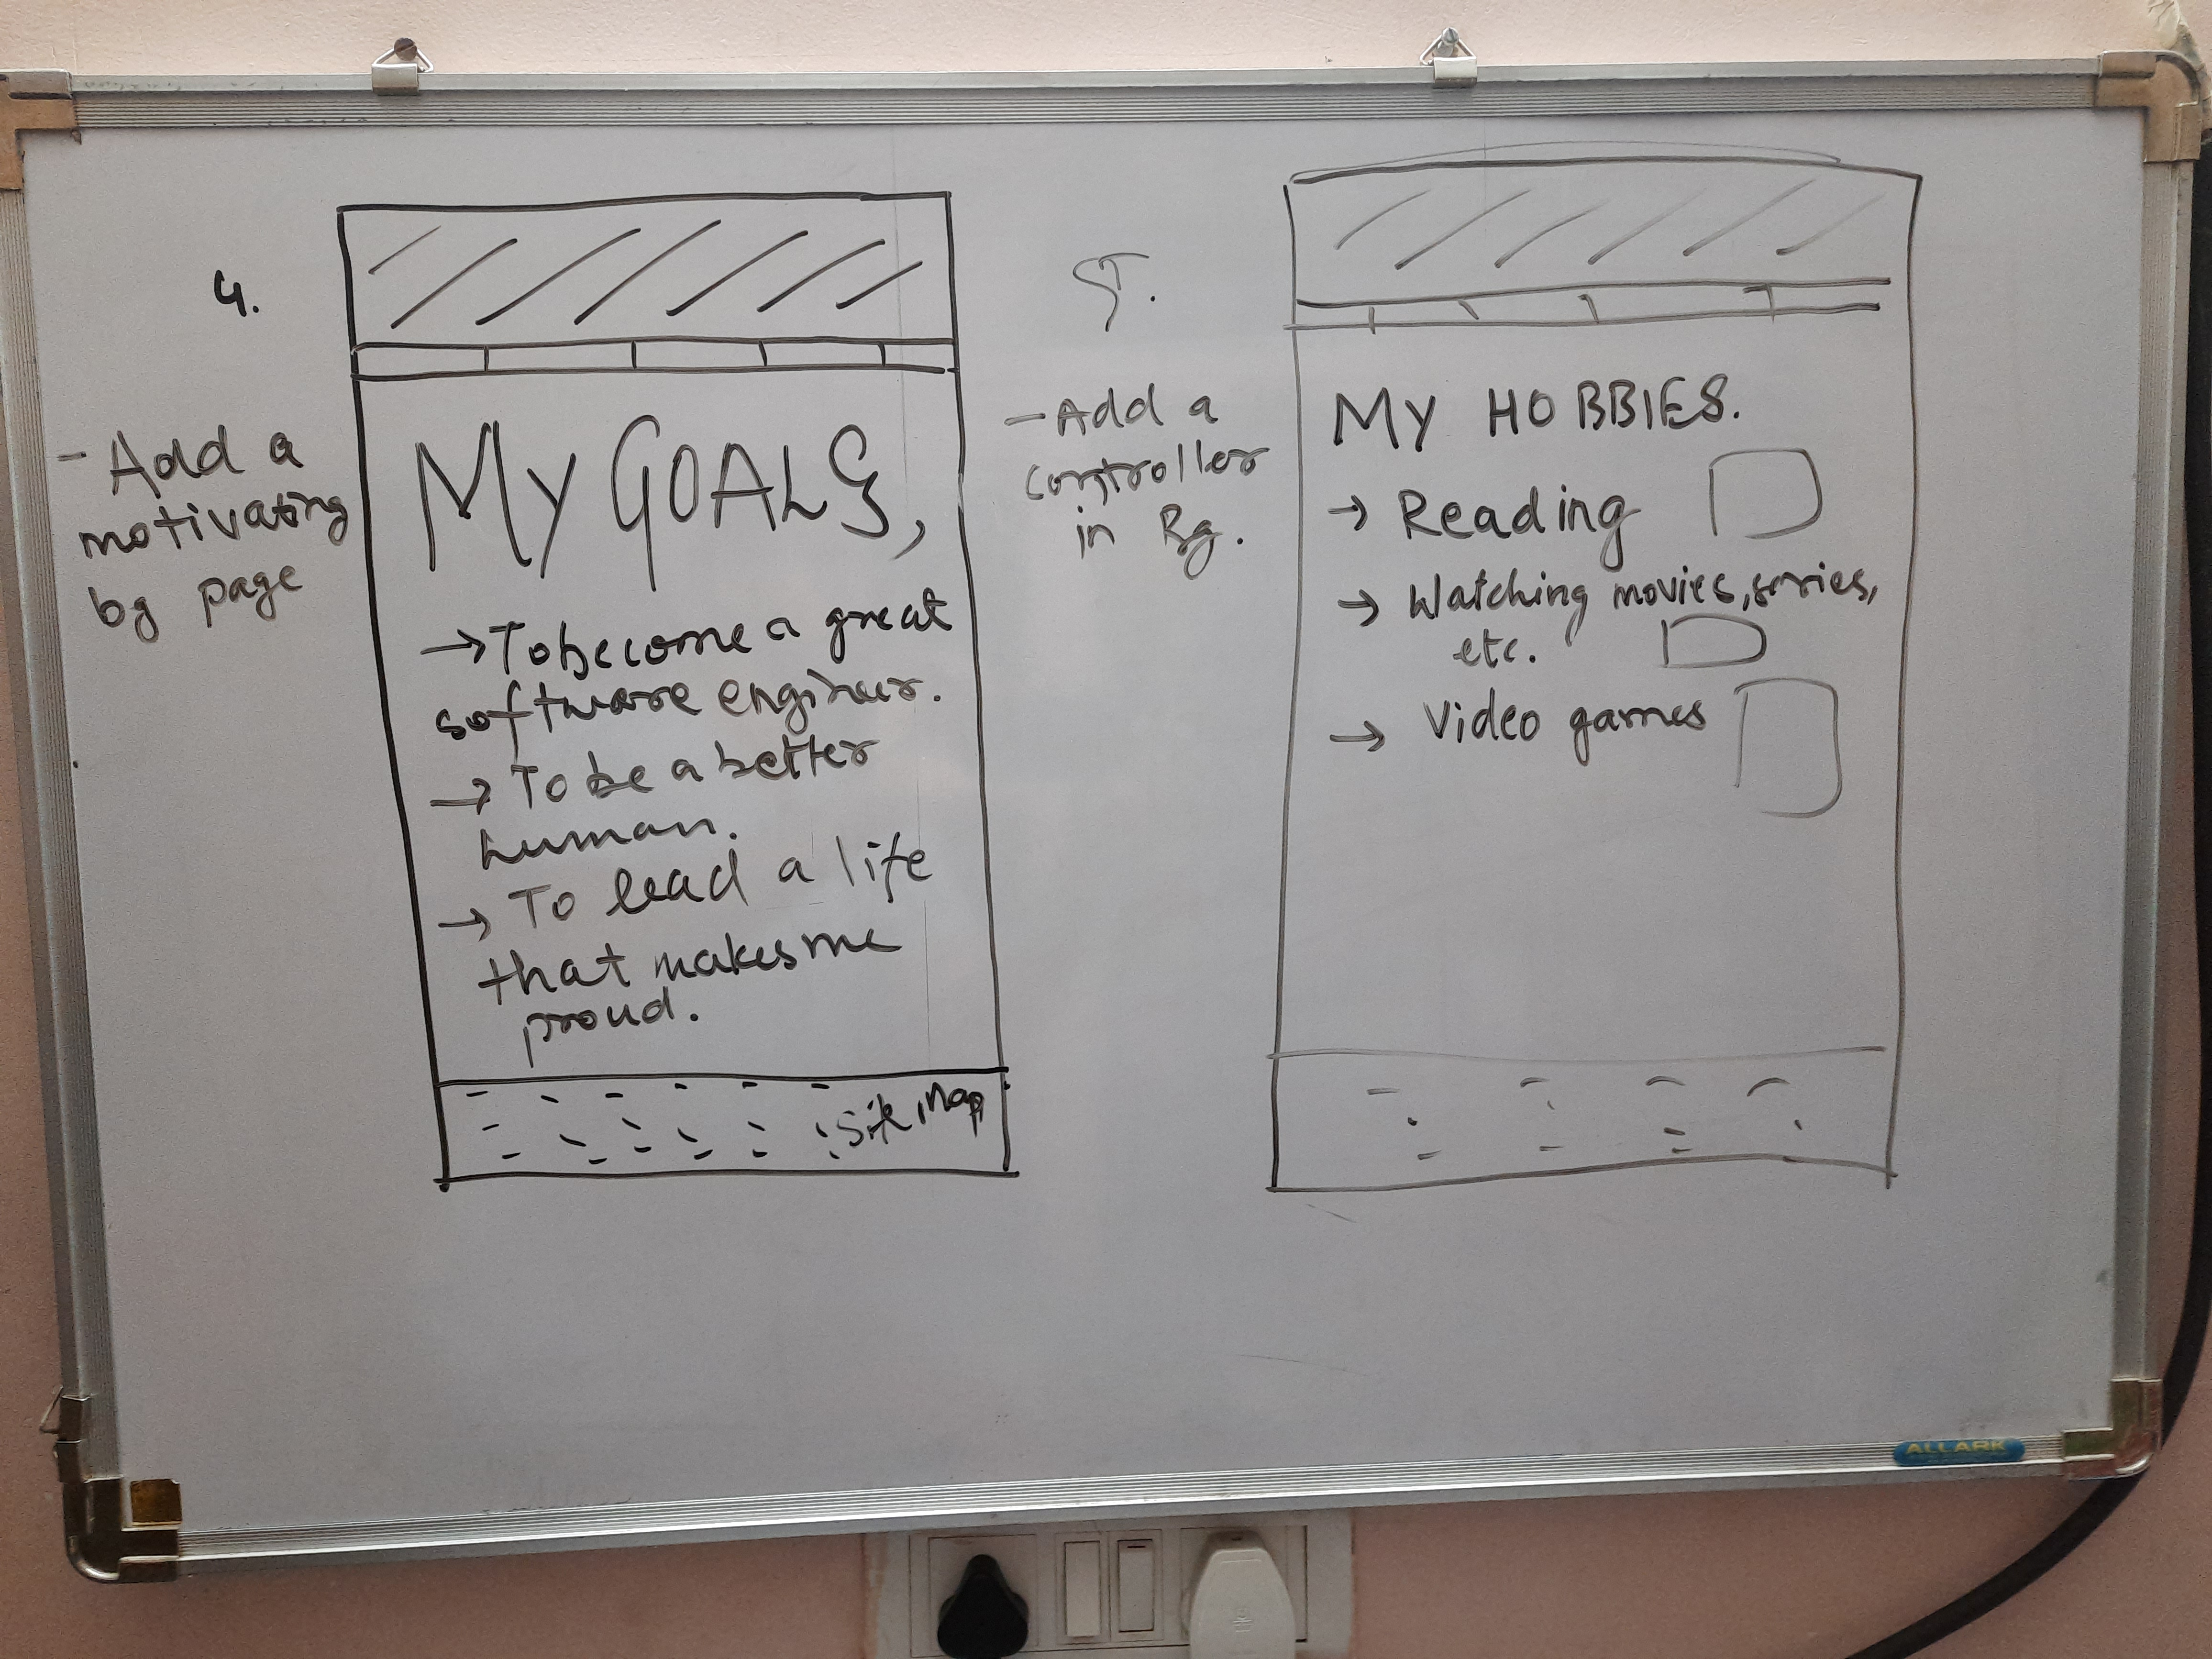 4.
- Add a
motivating
bg page
My GOALS,
→ To become a great
software engineer.
→ To be a better
human.
→ To lead a life
that makes me
proud.
Site Map
5.
- Add a
controller
in Bg.
MY HOBBIES.
→ Reading
→ Watching movies, series,
etc.
→ Video games
ALLARK